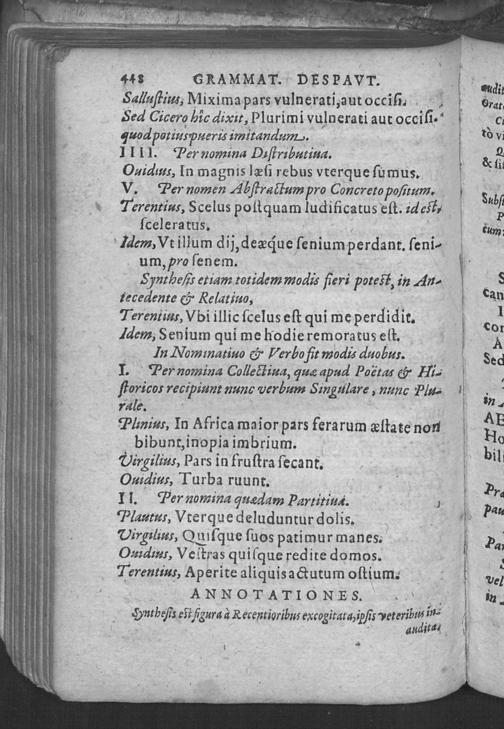 448 GRAMMAT. DESPAVT.
Sallustius, Mixima pars vulnerati, aut occisi.
Sed Cicero hîc dixit, Plurimi vulnerati aut occisi.
quod potius pueris imitandum.
IIII. Per nomina Distributiua.
Ouidius, In magnis læsi rebus vterque sumus.
V. Per nomen Abstractum pro Concreto positum.
Terentius, Scelus postquam ludificatus est. id est,
sceleratus.
Idem, Vt illum dij, deæq́ue senium perdant. seni-
um, pro senem.
Synthesis etiam totidem modis fieri potest, in An-
tecedente & Relatiuo,
Terentius, Vbi illic scelus est qui me perdidit.
Idem, Senium qui me hodie remoratus est.
In Nominatiuo & Verbo fit modis duobus.
I. Per nomina Collectiua, quæ apud Poëtas & Hi-
storicos recipiunt nunc verbum Singulare, nunc Plu-
rale.
Plinius, In Africa maior pars ferarum æstate non
bibunt, inopia imbrium.
Virgilius, Pars in frustra secant.
Ouidius, Turba ruunt.
II. Per nomina quædam Partitiua.
Plautus, Vterque deluduntur dolis.
Virgilius, Quisque suos patimur manes.
Ouidius, Vestras quisque redite domos.
Terentius, Aperite aliquis actutum ostium.
ANNOTATIONES.
Synthesis est figura à Recentioribus excogitata, ipsis veteribus in-
audita,